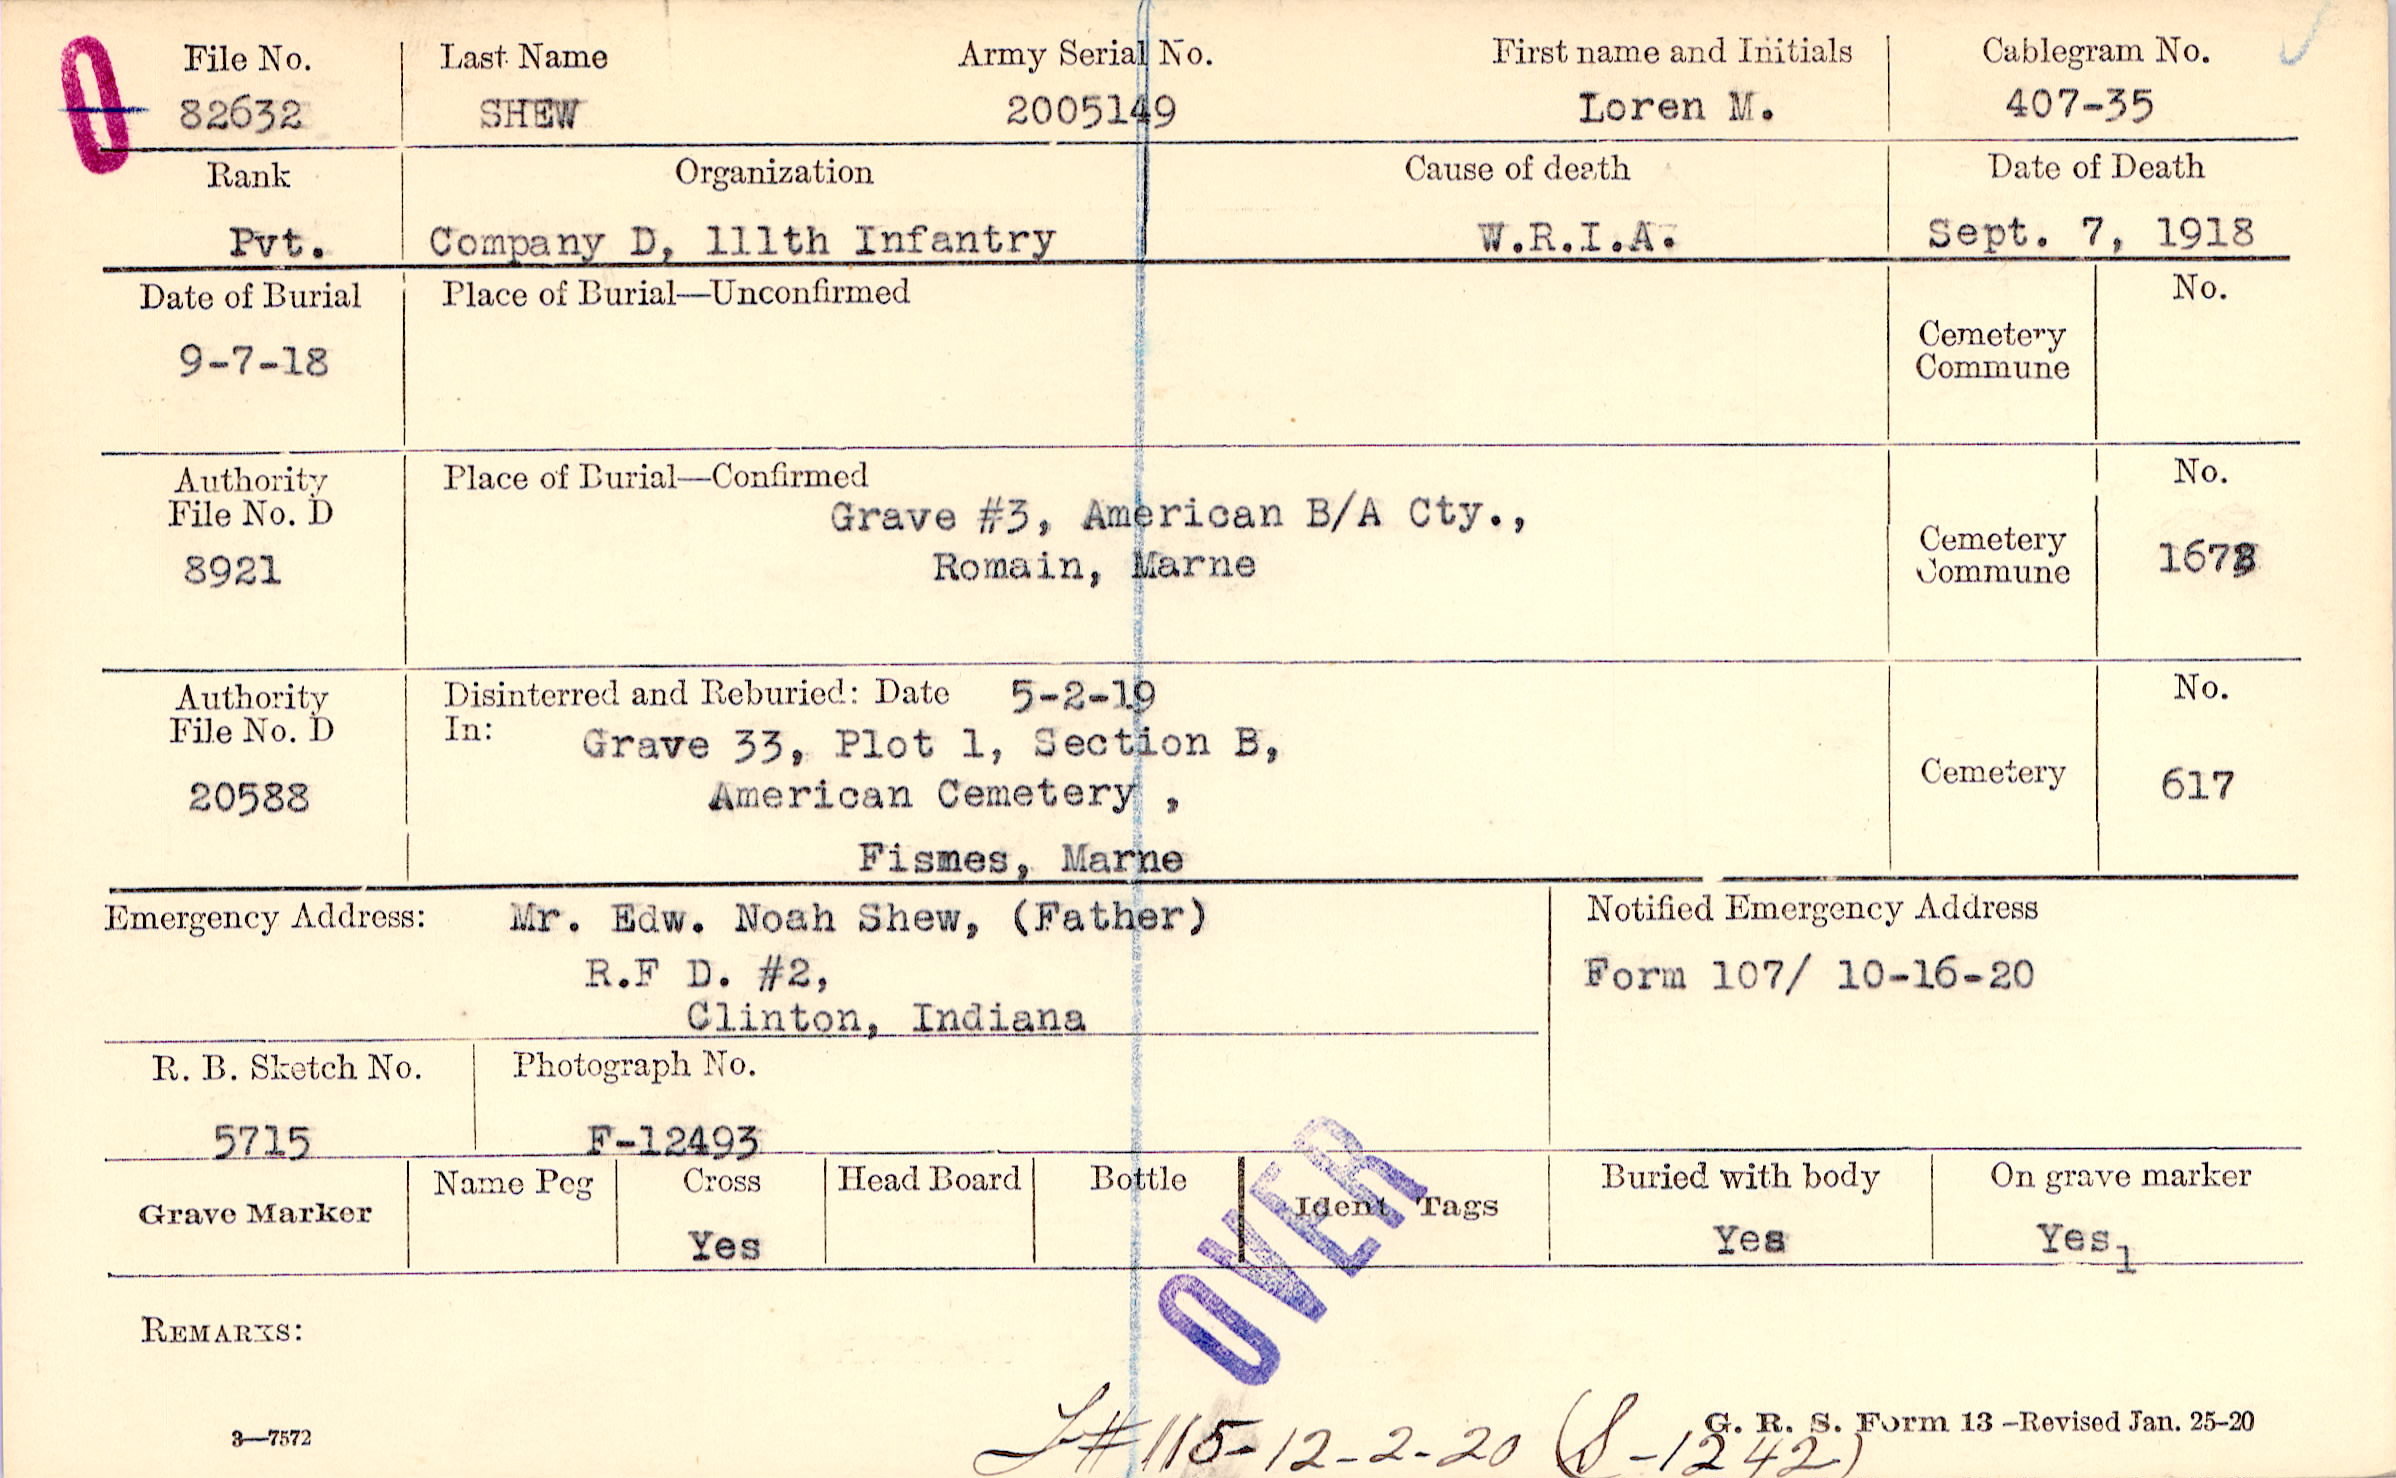 File No. Last Name Army Serial No. First name and Initials Cablegram No.
82632 SHEW 2005149 Loren M. 407-35
Rank Organization Cause of death Date of Death
Pvt. Company D, 111th Infantry W.R.I.A. Sept. 7, 1918
Date of Burial Place of Burial—Unconfirmed No.
Cemetery
Commune
9-7-18
Authority Place of Burial—Confirmed No.
File No. D Grave #3, American B/A Cty.,
8921 Romain, Marne
Cemetery
Commune
Authority Disinterred and Reburied: Date 5-2-19 No.
File No. D In: Grave 33, Plot 1, Section B,
20588 American Cemetery , Cemetery 617
Fismes, Marne
Emergency Address: Mr. Edw. Noah Shew, (Father) Notified Emergency Address
R.F D. #2, Form 107/ 10-16-20
Clinton, Indiana
R. B. Sketch No. Photograph No.
5715 F-12493
Grave Marker Name Peg Cross Head Board Bottle Ident Tags Buried with body On grave marker
Yes Yes Yes1
OVER
REMARKS:
3—7572 G. R. S. Form 13 -Revised Jan. 25-20
#115-12-2-20 (S-1242)